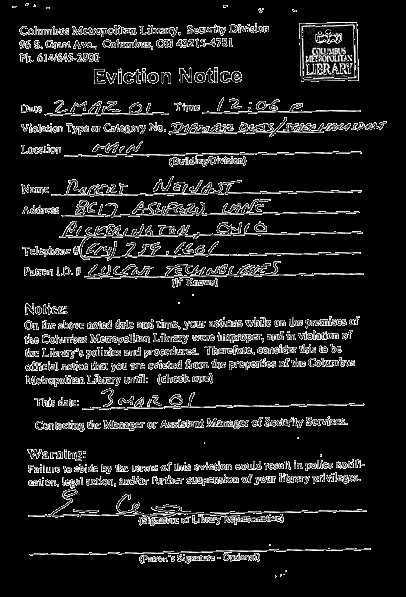 Columbus Metropolitan Library, Security Division
96 S. Grant Ave., Columbus, OH 43215-4781
Ph. 614/645-2800
COLUMBUS
METROPOLITAN
LIBRARY
Eviction Notice
Date 2 MAR 01 Time 12:06 P
Violation Type or Category No.
Location MAIN
(Building/Division)
Name ROBERT NEINAST
Address 8617 ASHFORD LANE
PICKERINGTON, OHIO
Telephone # (614) 759.1601
Patron I.D. # LUCENT TECHNOLOGIES
(If Known)
Notice:
On the above noted date and time, your actions while on the premises of
the Columbus Metropolitan Library were improper, and in violation of
the Library's policies and procedures. Therefore, consider this to be
official notice that you are evicted from the properties of the Columbus
Metropolitan Library until: (check one)
This date: 3 MAR 01
Contacting the Manager or Assistant Manager of Security Services.
Warning:
Failure to abide by the terms of this eviction could result in police notifi-
cation, legal action, and/or further suspension of your library privileges.
(Signature of Library Representative)
(Patron's Signature - Optional)